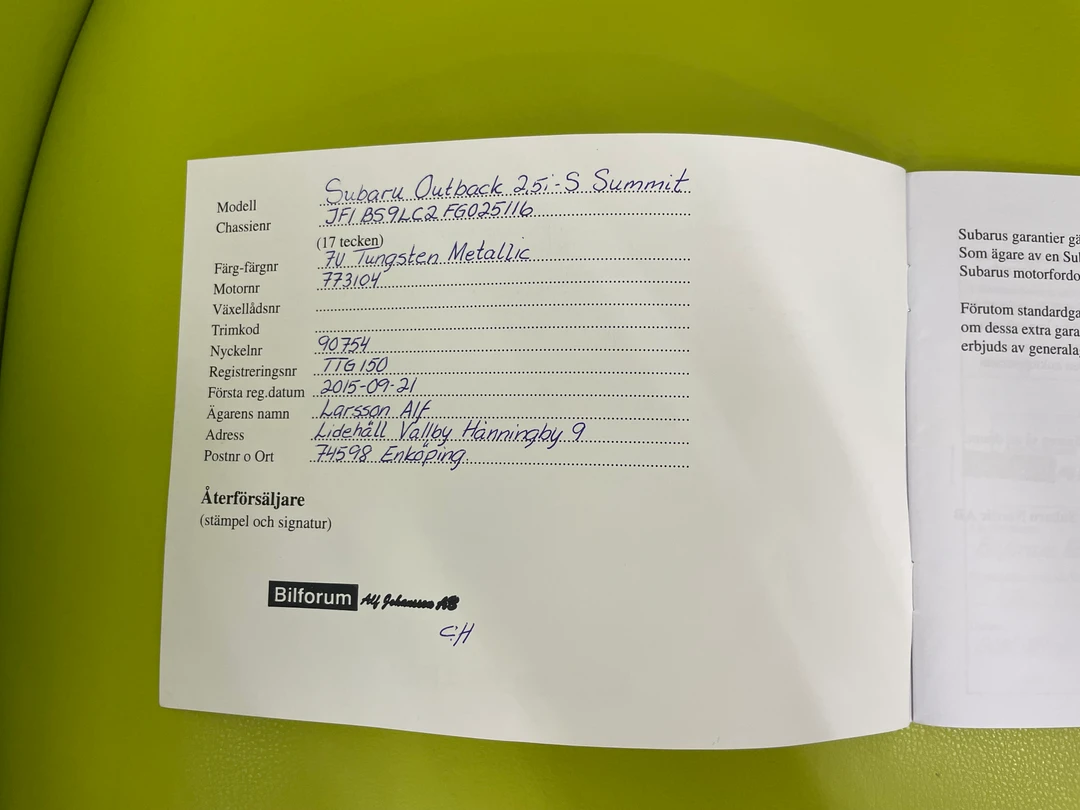 Modell Subaru Outback 2,5i-S Summit
Chassienr JF1BS9LC2FG025116
(17 tecken)
Färg-färgnr 7U Tungsten Metallic
Motornr 773104
Växellådsnr
Trimkod
Nyckelnr 90754
Registreringsnr TTG150
Första reg.datum 2015-09-21
Ägarens namn Larsson Alf
Adress Lidehäll Vallby Hänningby 9
Postnr o Ort 74598 Enköping
Återförsäljare
(stämpel och signatur)
Bilforum Alf Johansson AB
CH
Subarus garantier
Som ägare av en
Subarus
Förutom
om dessa extra
erbjuds av